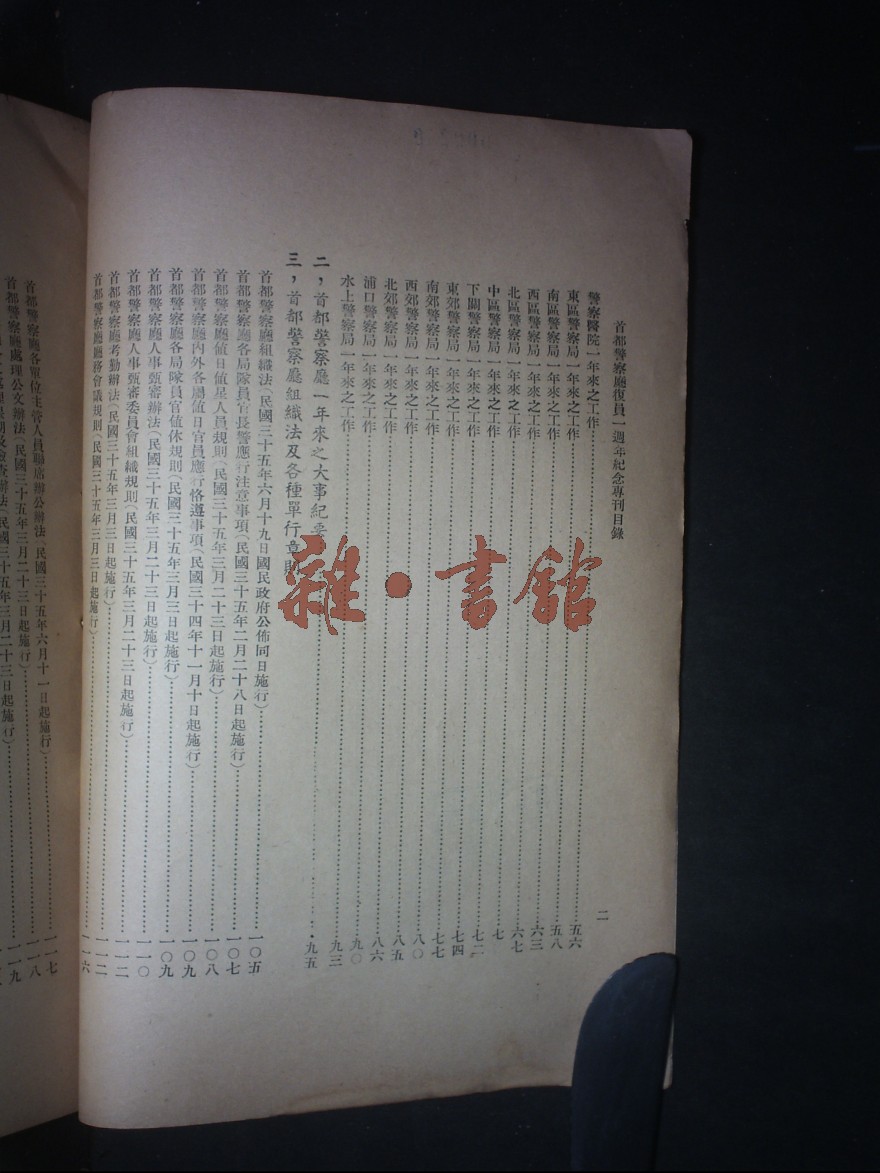 首都警察廳復員一週年紀念專刊目錄
二
警察醫院一年來之工作
東區警察局一年來之工作……五六
南區警察局一年來之工作……五八
西區警察局一年來之工作……六三
北區警察局一年來之工作……六七
中區警察局一年來之工作……七
下關警察局一年來之工作……七二
東郊警察局一年來之工作……七四
南郊警察局一年來之工作……七七
西郊警察局一年來之工作……八〇
北郊警察局一年來之工作……八五
浦口警察局一年來之工作……八六
水上警察局一年來之工作……九〇
九三
二，首都警察廳一年來之大事紀要……九五
三，首都警察廳組織法及各種單行章則
首都警察廳組織法（民國三十五年六月十九日國民政府公佈同日施行）……一〇五
首都警察廳各局隊員官長警應行注意事項（民國三十五年二月二十八日起施行）……一〇七
首都警察廳值日值星人員規則（民國三十五年三月二十三日起施行）……一〇八
首都警察廳內外各屬值日官員應行恪遵事項（民國三十四年十一月十日起施行）……一〇九
首都警察廳各局隊員官值休規則（民國三十五年三月三日起施行）……一〇九
首都警察廳人事甄審辦法（民國三十五年三月二十三日起施行）……一一〇
首都警察廳人事甄審委員會組織規則（民國三十五年三月二十三日起施行）……一一二
首都警察廳考勤辦法（民國三十五年三月三日起施行）……一一二
首都警察廳廳務會議規則（民國三十五年三月三日起施行）……一一六
首都警察廳各單位主管人員聯席辦公辦法（民國三十五年六月十一日起施行）……一一七
首都警察廳處理公文辦法（民國三十五年三月二十三日起施行）……一一八
檢查辦法（民國三十五年三月二十三日起施行）……一一九
雜·書館